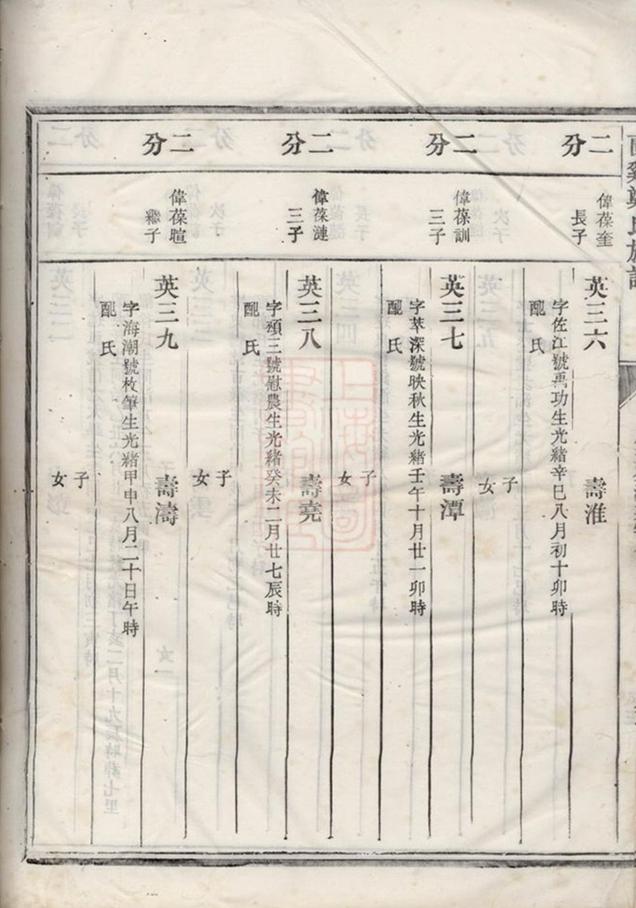 二分
偉葆奎
長子
英三六 壽淮
字佐江號禹功生光緒辛巳八月初十卯時
配 氏
子
女
二分
偉葆訓
三子
英三七 壽潭
字萃深號映秋生光緒壬午十月廿一卯時
配 氏
子
女
二分
偉葆漣
三子
英三八 壽堯
字頌三號慰農生光緒癸未二月廿七辰時
配 氏
子
女
二分
偉葆暄
繼子
英三九 壽濤
字海潮號枚筆生光緒甲申八月二十日午時
配 氏
子
女